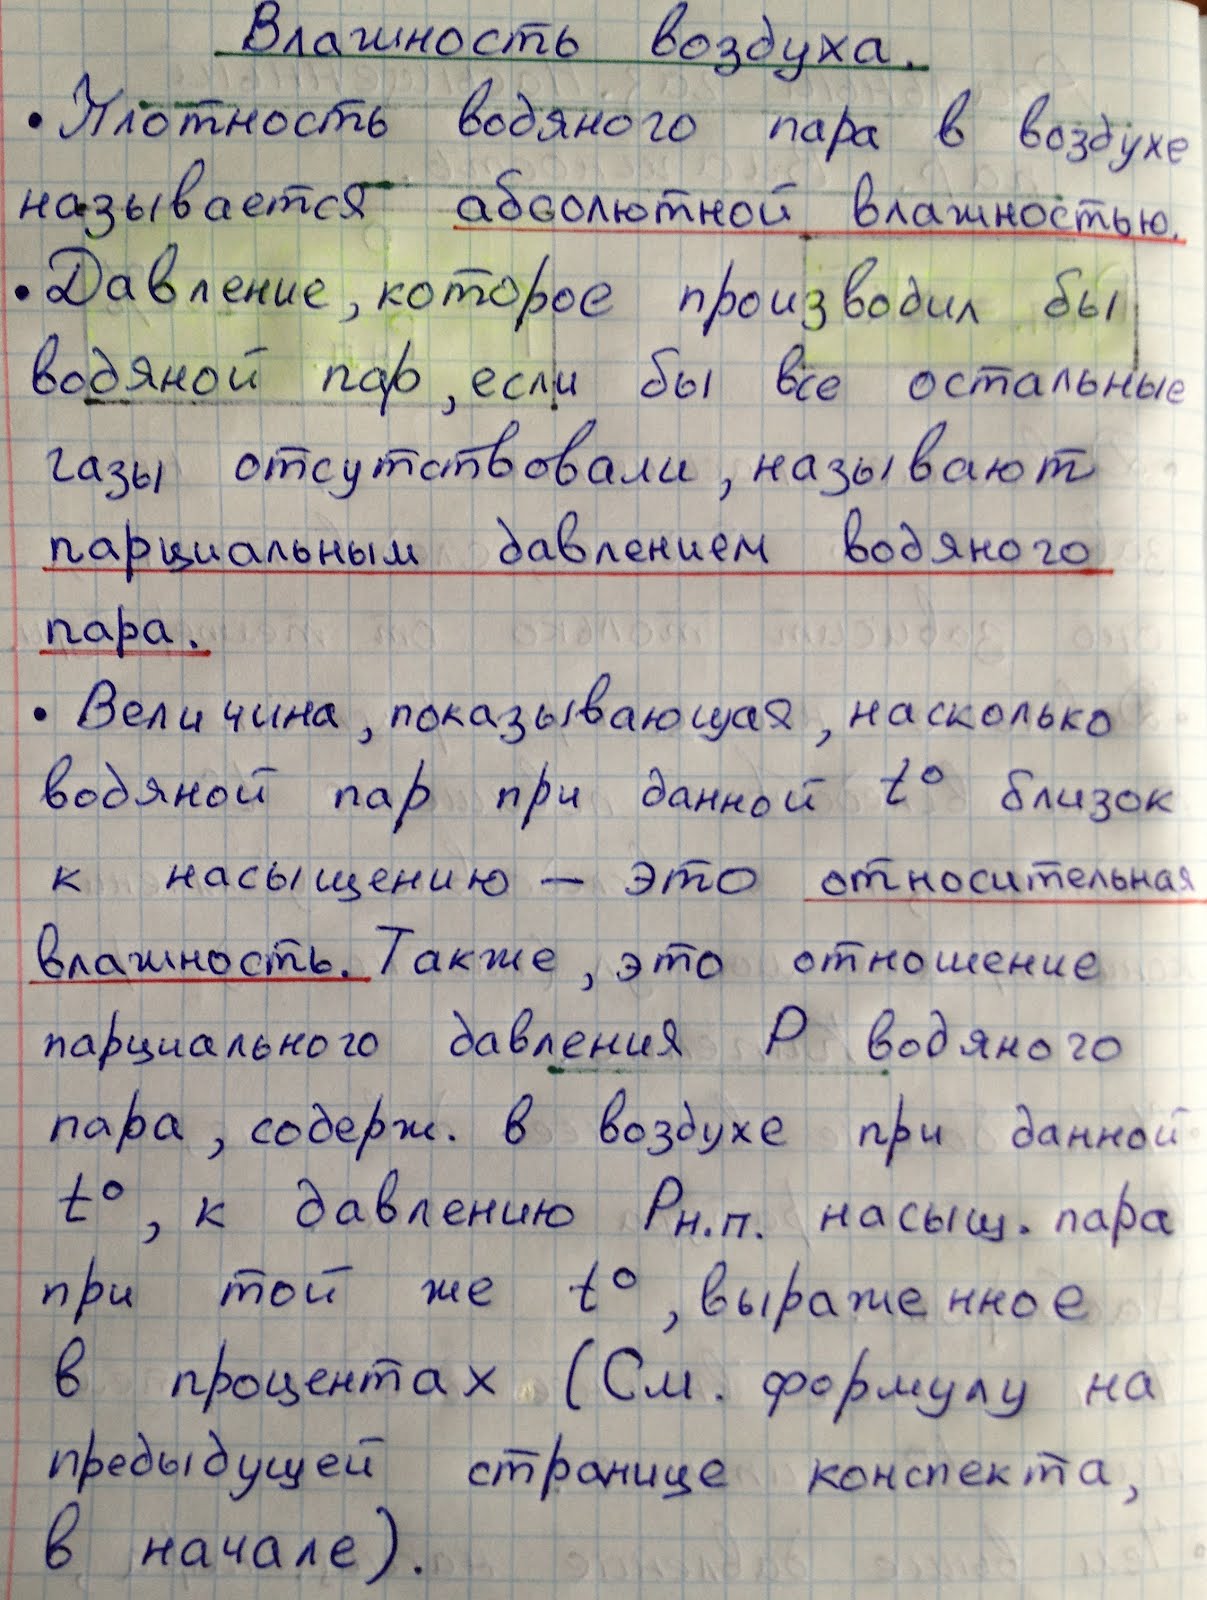 Влажность воздуха.
• Плотность водяного пара в воздухе
называется абсолютной влажностью.
• Давление, которое производил бы
водяной пар, если бы все остальные
газы отсутствовали, называют
парциальным давлением водяного
пара.
• Величина, показывающая, насколько
водяной пар при данной t° близок
к насыщению – это относительная
влажность. Также, это отношение
парциального давления P водяного
пара, содерж. в воздухе при данной
t°, к давлению Pн.п. насыщ. пара
при той же t°, выраженное
в процентах (См. формулу на
предыдущей странице конспекта,
в начале).